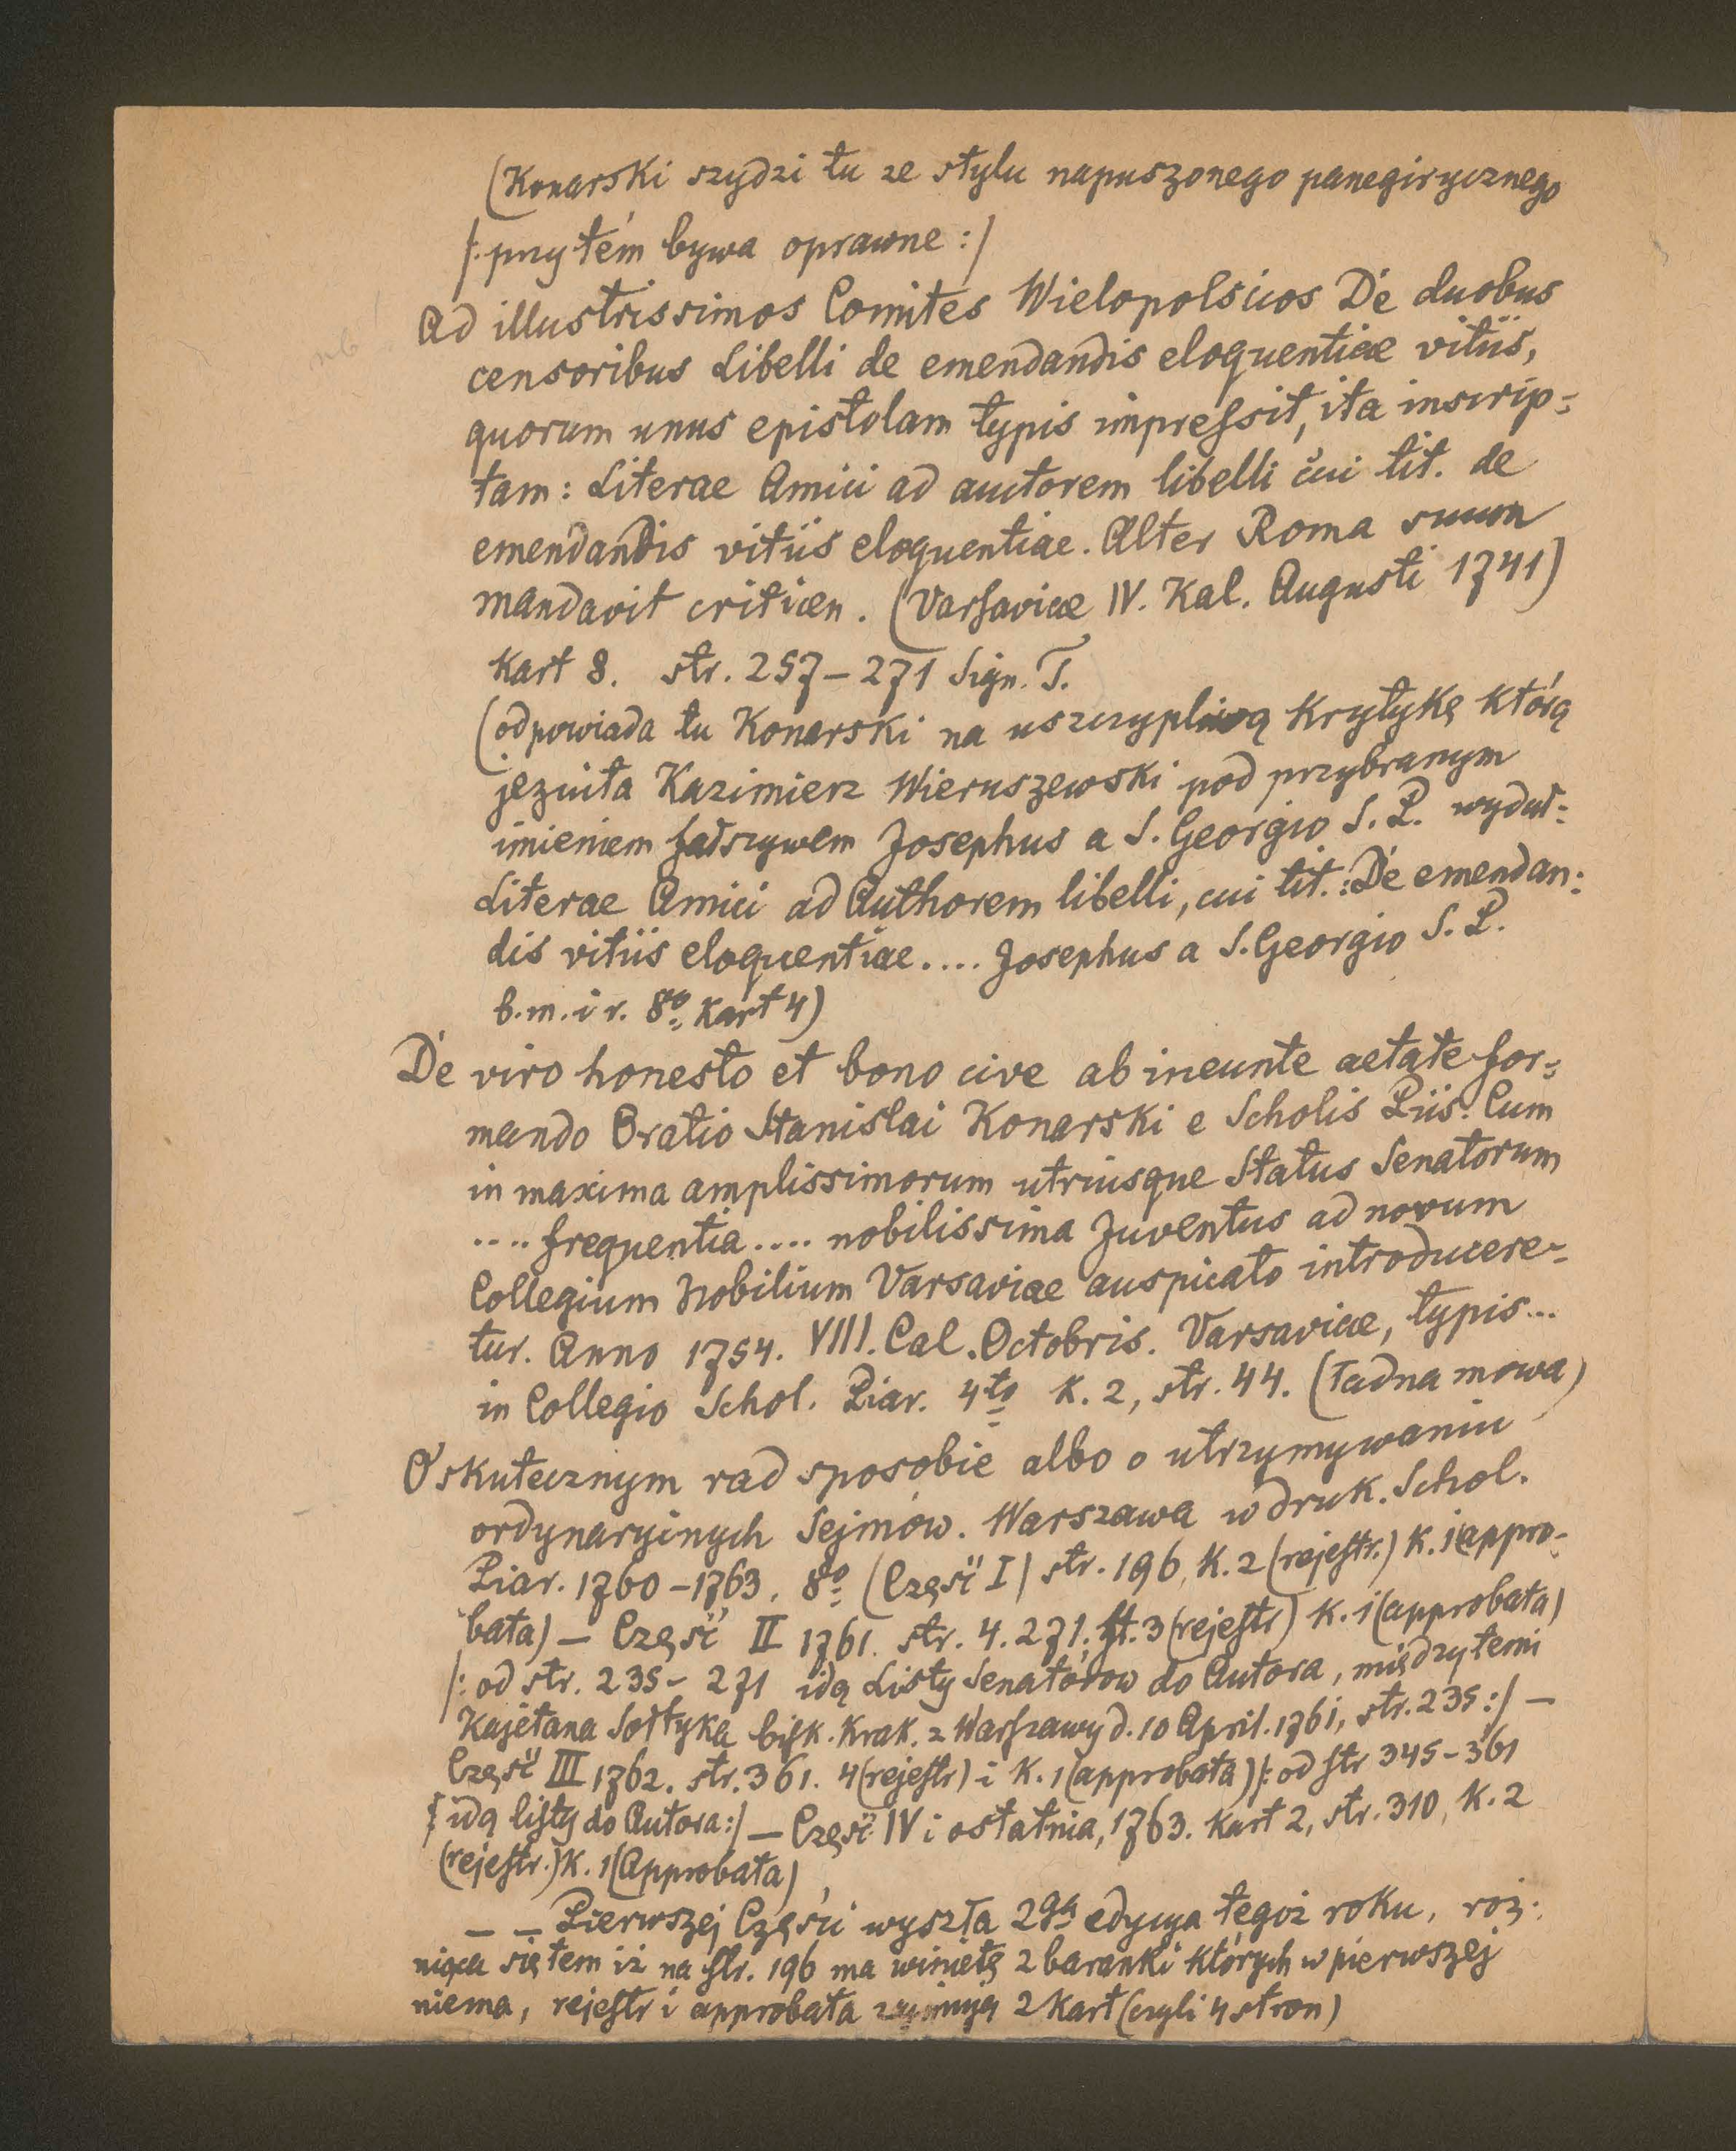 (Konarski szydzi tu ze stylu napuszonego panegirycznego
/: przytém bywa oprawne :/
Ad illustrissimos Comites Wielopolscios De duobus
censoribus Libelli de emendandis eloquentiae vitiis,
quorum unus epistolam typis impressit, ita inscrip=
tam: Literae Amici ad auctorem libelli cui tit. de
emendandis vitiis eloquentiae. Alter Roma suum
mandavit criticen. (Varsaviae IV. Kal. Augusti 1741)
Kart 8. str. 257–271 Sign. T.
(odpowiada tu Konarski na uszczypliwą krytykę którą
jezuita Kazimierz Wieruszewski pod przybranym
imieniem fałszywem Josephus a S. Georgio S. P. wydał:
Literae Amici ad Authorem libelli, cui tit.: De emendan=
dis vitiis eloquentiae.... Josephus a S. Georgio S. P.
b. m. i r. 8º kart 4)
De viro honesto et bono cive ab ineunte aetate for=
mando Oratio Stanislai Konarski e Scholis Piis. Cum
in maxima amplissimorum utriusque Status Senatorum
.... frequentia.... nobilissima Juventus ad novum
Collegium Nobilium Varsaviae auspicato introducere=
tur. Anno 1754. VIII. Cal. Octobris. Varsaviae, typis...
in Collegio Schol. Piar. 4to K. 2, str. 44. (ładna mowa)
O skutecznym rad sposobie albo o utrzymywaniu
ordynaryinych Sejmow. Warszawa w druk. Schol.
Piar. 1760–1763. 8º (Część I) str. 196, K. 2 (rejestr.) K. 1 (appro=
bata) – Część II 1761. str. 4. 271. st. 3 (rejestr) K. 1 (approbata)
/: od str. 235– 271 idą Listy Senatorow do Autora, między temi
Kajetana Sołtyka bisk. Krak. z Warszawy d. 10 April. 1761, str. 235 :/ –
Część III 1762. str. 361. 4 (rejestr) i K. 1 (approbata) /: od str 345–361
idą listy do Autora :/ – Część IV i ostatnia, 1763. kart 2, str. 310, K. 2
(rejestr.) K. 1 (Approbata)
– – Pierwszej Części wyszła 2ga edycya tegoż roku, roż=
niąca się tem iż na str. 196 ma winietę 2 baranki których w pierwszej
niema, rejestr i approbata zajmują 2 kart (czyli 4 stron)